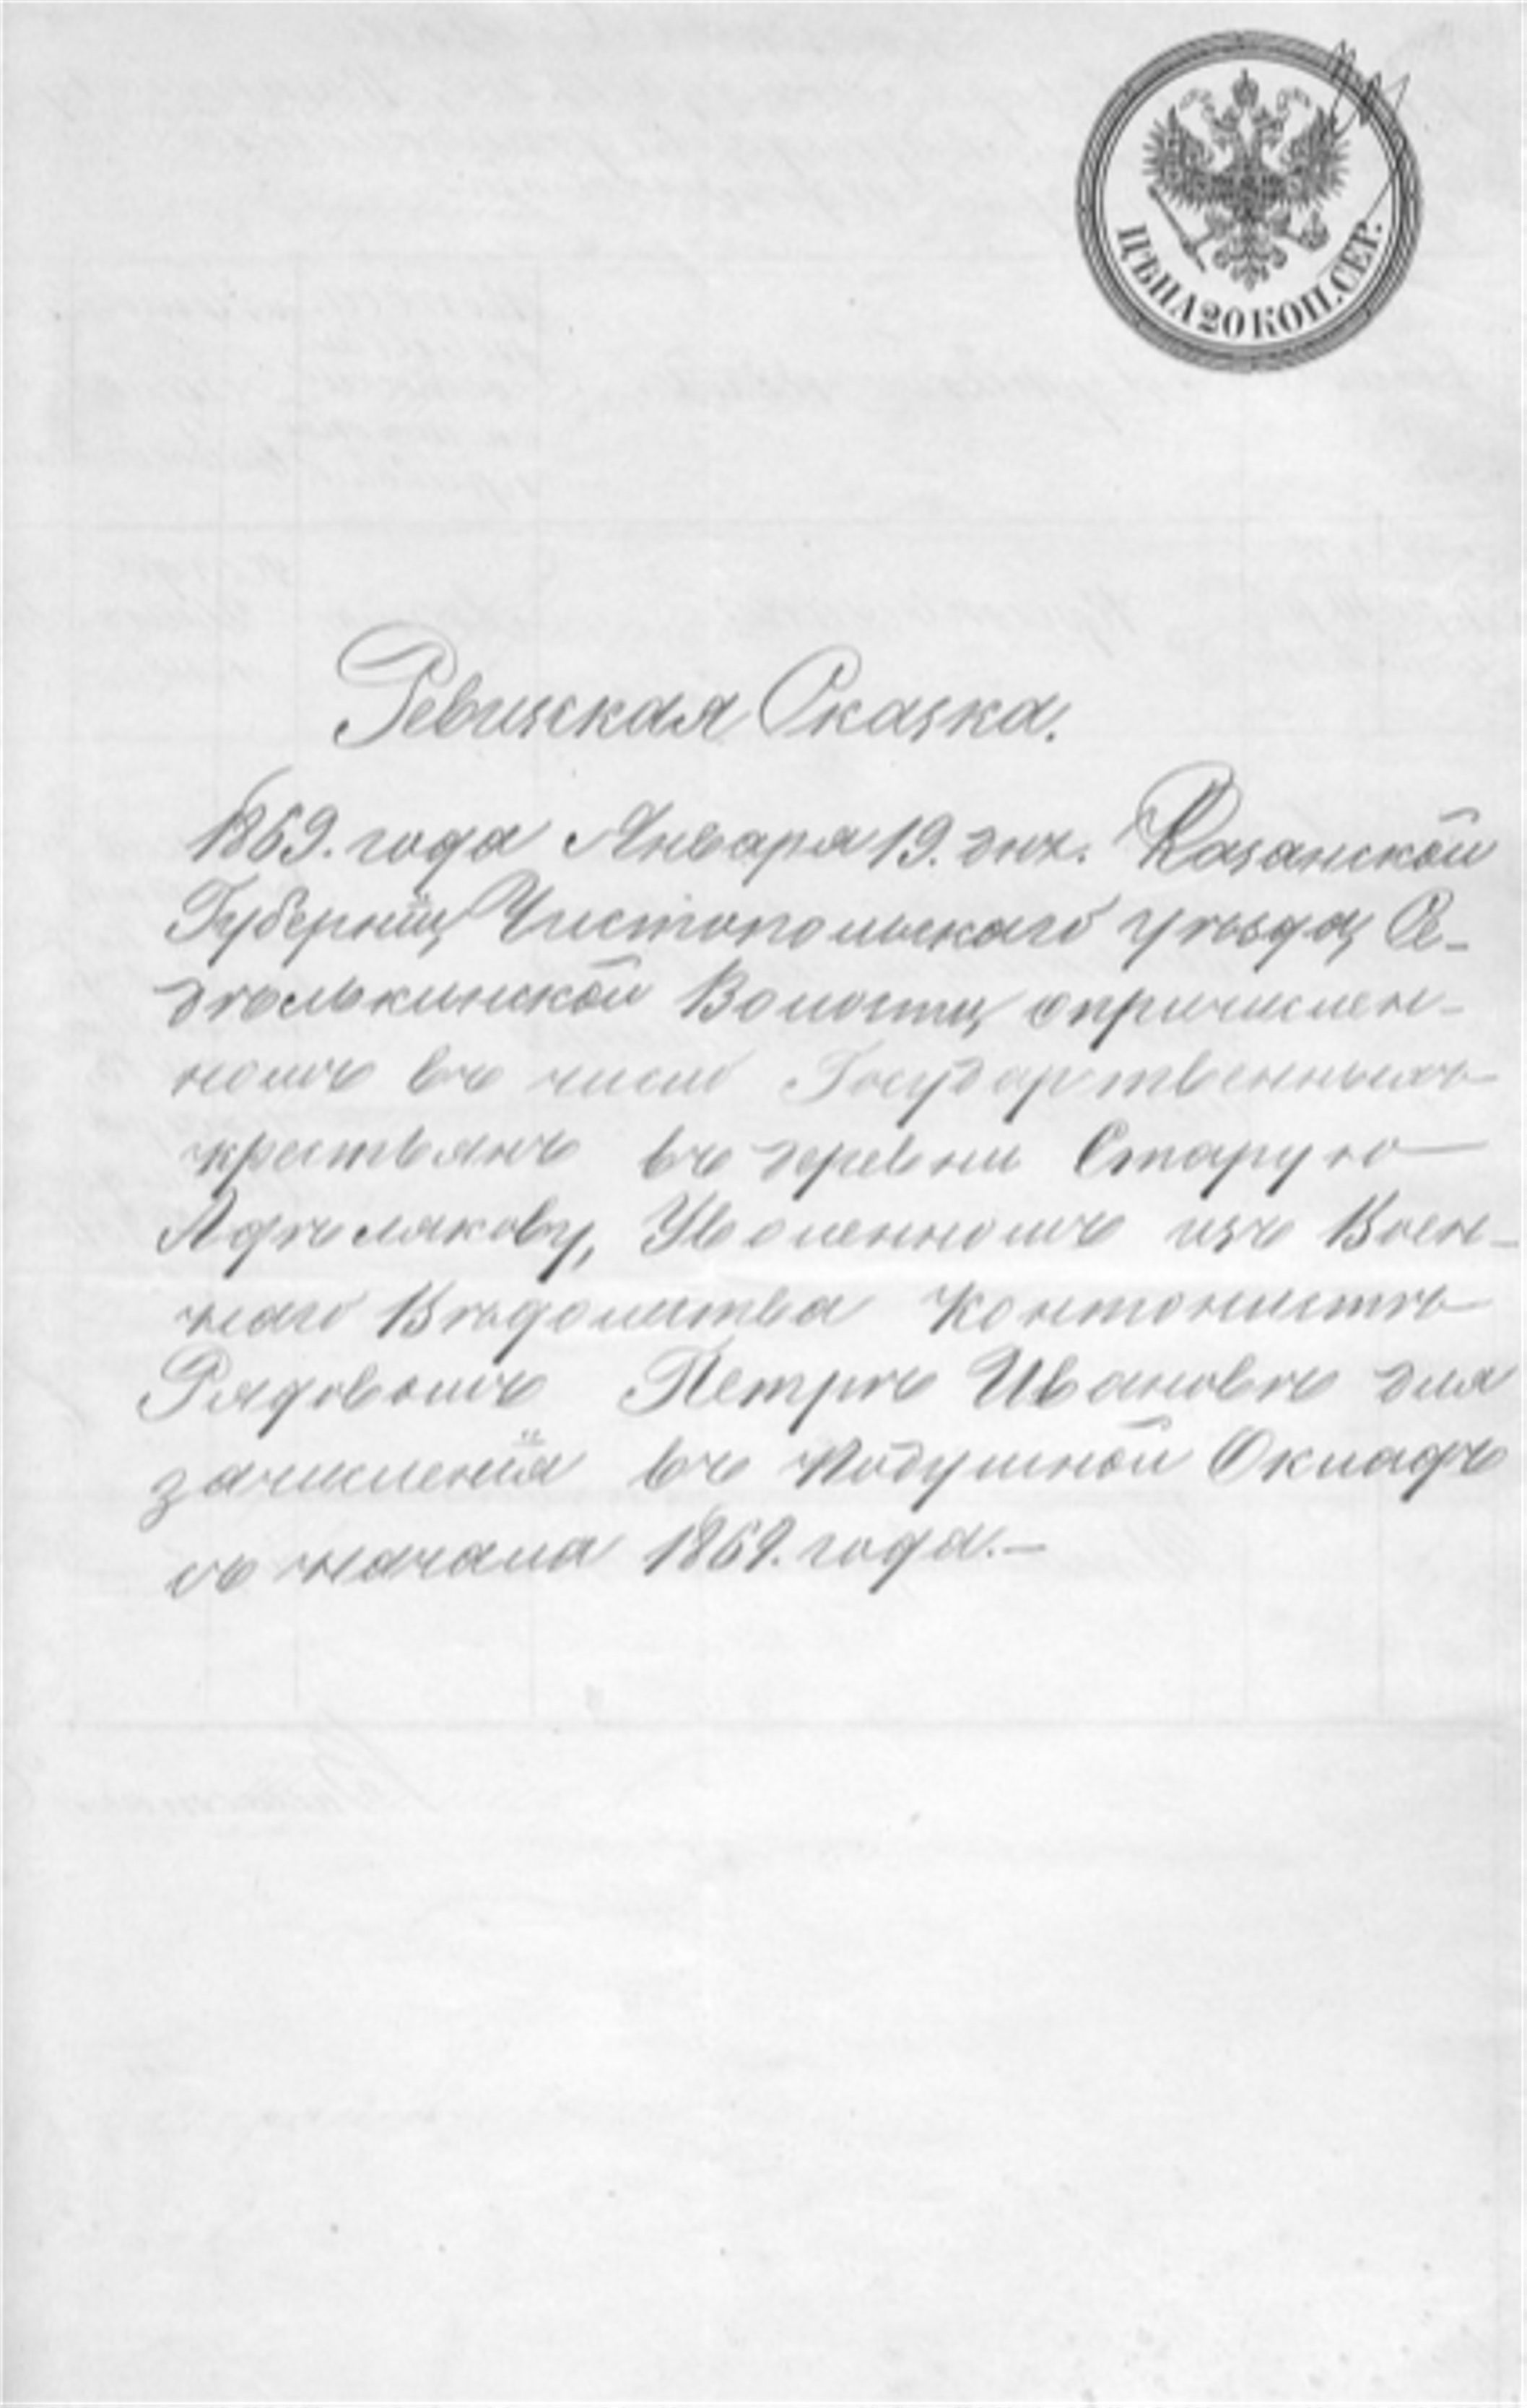 ЦѢНА 20 КОП. СЕР.
Ревизская Сказка.
1869. года Января 19. дня. Казанской
Губерніи, Чистопольскаго уѣзда, Се-
дѣлькинской Волости, опричислен-
номъ въ число Государственныхъ
крестьянъ въ деревни Старую
Адѣлякову, Уволенномъ изъ Воен-
наго Вѣдомства Контонистѣ
Рядовомъ Петрѣ Ивановѣ для
зачисленія въ Подушной Окладъ
съ начала 1869. года.—